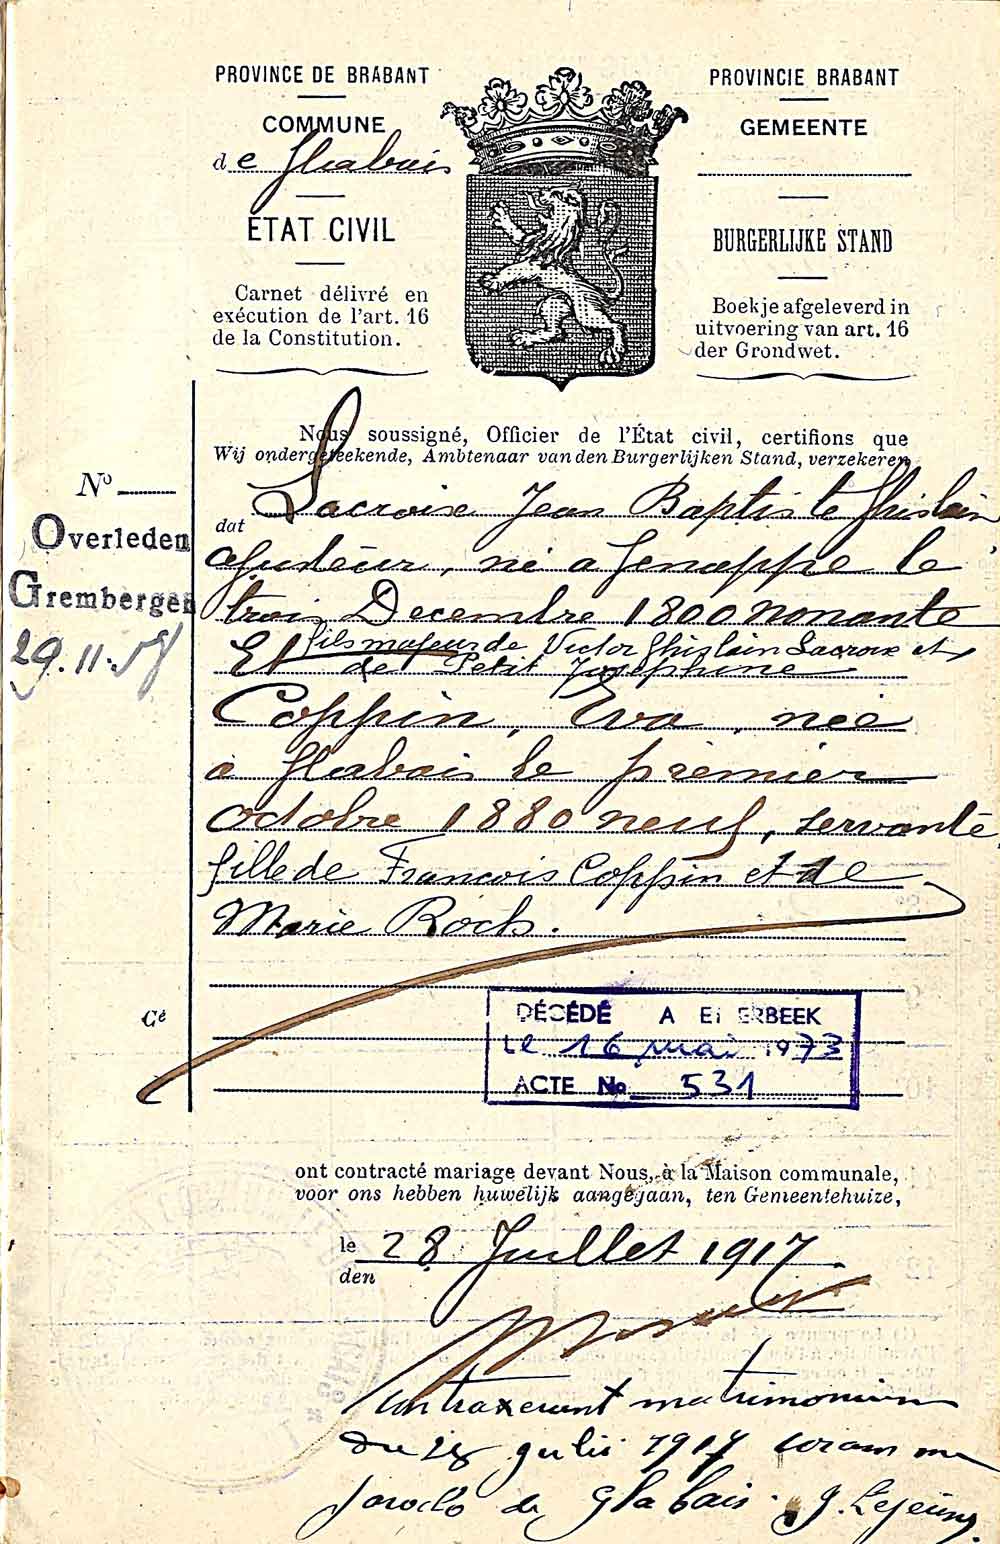 PROVINCE DE BRABANT
COMMUNE
de Glabais
ÉTAT CIVIL
Carnet délivré en
exécution de l'art. 16
de la Constitution.
PROVINCIE BRABANT
GEMEENTE
BURGERLIJKE STAND
Boekje afgeleverd in
uitvoering van art. 16
der Grondwet.
No
Overleden
Grembergen
29.11.
Cé
Nous soussigné, Officier de l'État civil, certifions que
Wij ondergeteekende, Ambtenaar van den Burgerlijken Stand, verzekeren
dat Lacroix Jean Baptiste Ghislain
ajusteur, né a Genappe le
trois Decembre 1800 nonante
fils majeur de Victor Ghislain Lacroix et
Et de Petit Joséphine
Coppin, Eva, née
à Glabais le premier
octobre 1880 neuf, servante,
fille de Francois Coppin et de
Marie Rock.
DÉCÉDÉ A ETTERBEEK
Le 16 mai 1973
ACTE No 531
ont contracté mariage devant Nous, à la Maison communale,
voor ons hebben huwelijk aangegaan, ten Gemeentehuize,
le 28 Juillet 1917.
den
contraxerunt matrimonium
die 28 julii 1917 coram me
parocho de Glabais. J. Lejeune